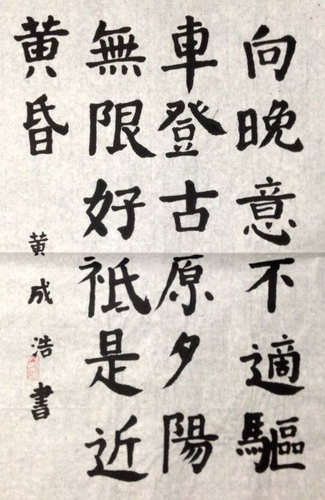 向晚意不適驅
車登古原夕陽
無限好祗是近
黃昏
黃成浩書